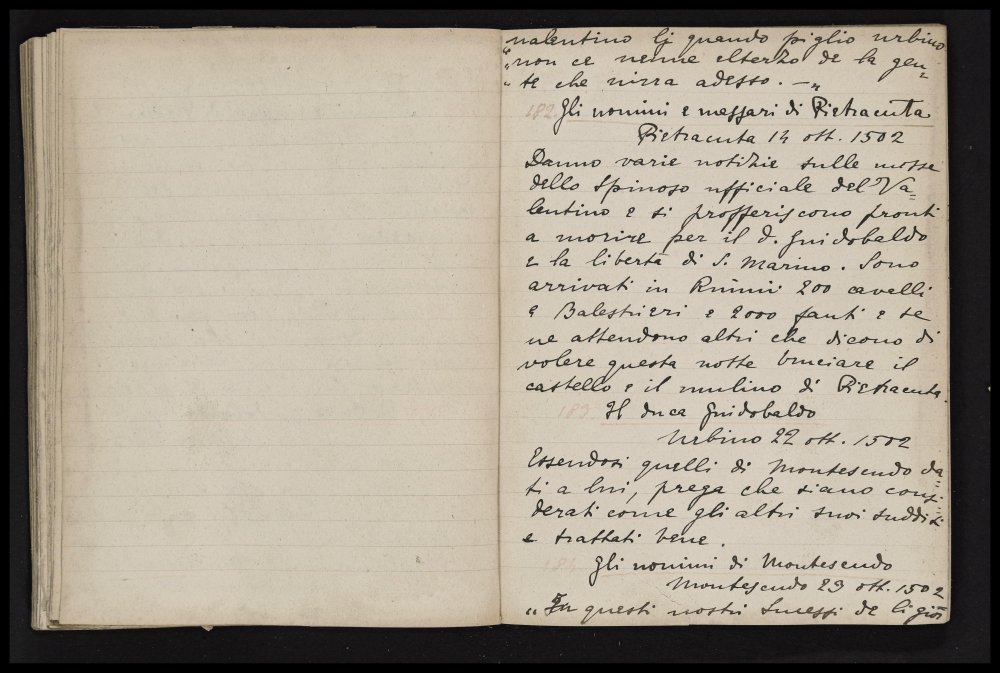 valentino lj quando piglio urbino
"non ce venne elterzo de la gen=
"te che virra adesso. —"
182. Gli uomini e messari di Pietracuta
Pietracuta 14 ott. 1502
Danno varie notizie sulle mosse
dello Spinoso ufficiale del Va=
lentino e si profferiscono pronti
a morire per il d. Guidobaldo
e la libertà di S. Marino. Sono
arrivati in Rimini 200 cavelli
e Balestrieri e 2000 fanti e se
ne attendono altri che dicono di
volere questa notte bruciare il
castello e il mulino di Pietracuta.
183. Il duca Guidobaldo
Urbino 22 ott. 1502
Essendosi quelli di Montesecudo da=
ti a lui, prega che siano consi=
derati come gli altri suoi sudditi
e trattati bene.
184. Gli uomini di Montescudo
Montescudo 23 ott. 1502
"In questi nostri Sucessi de li gior